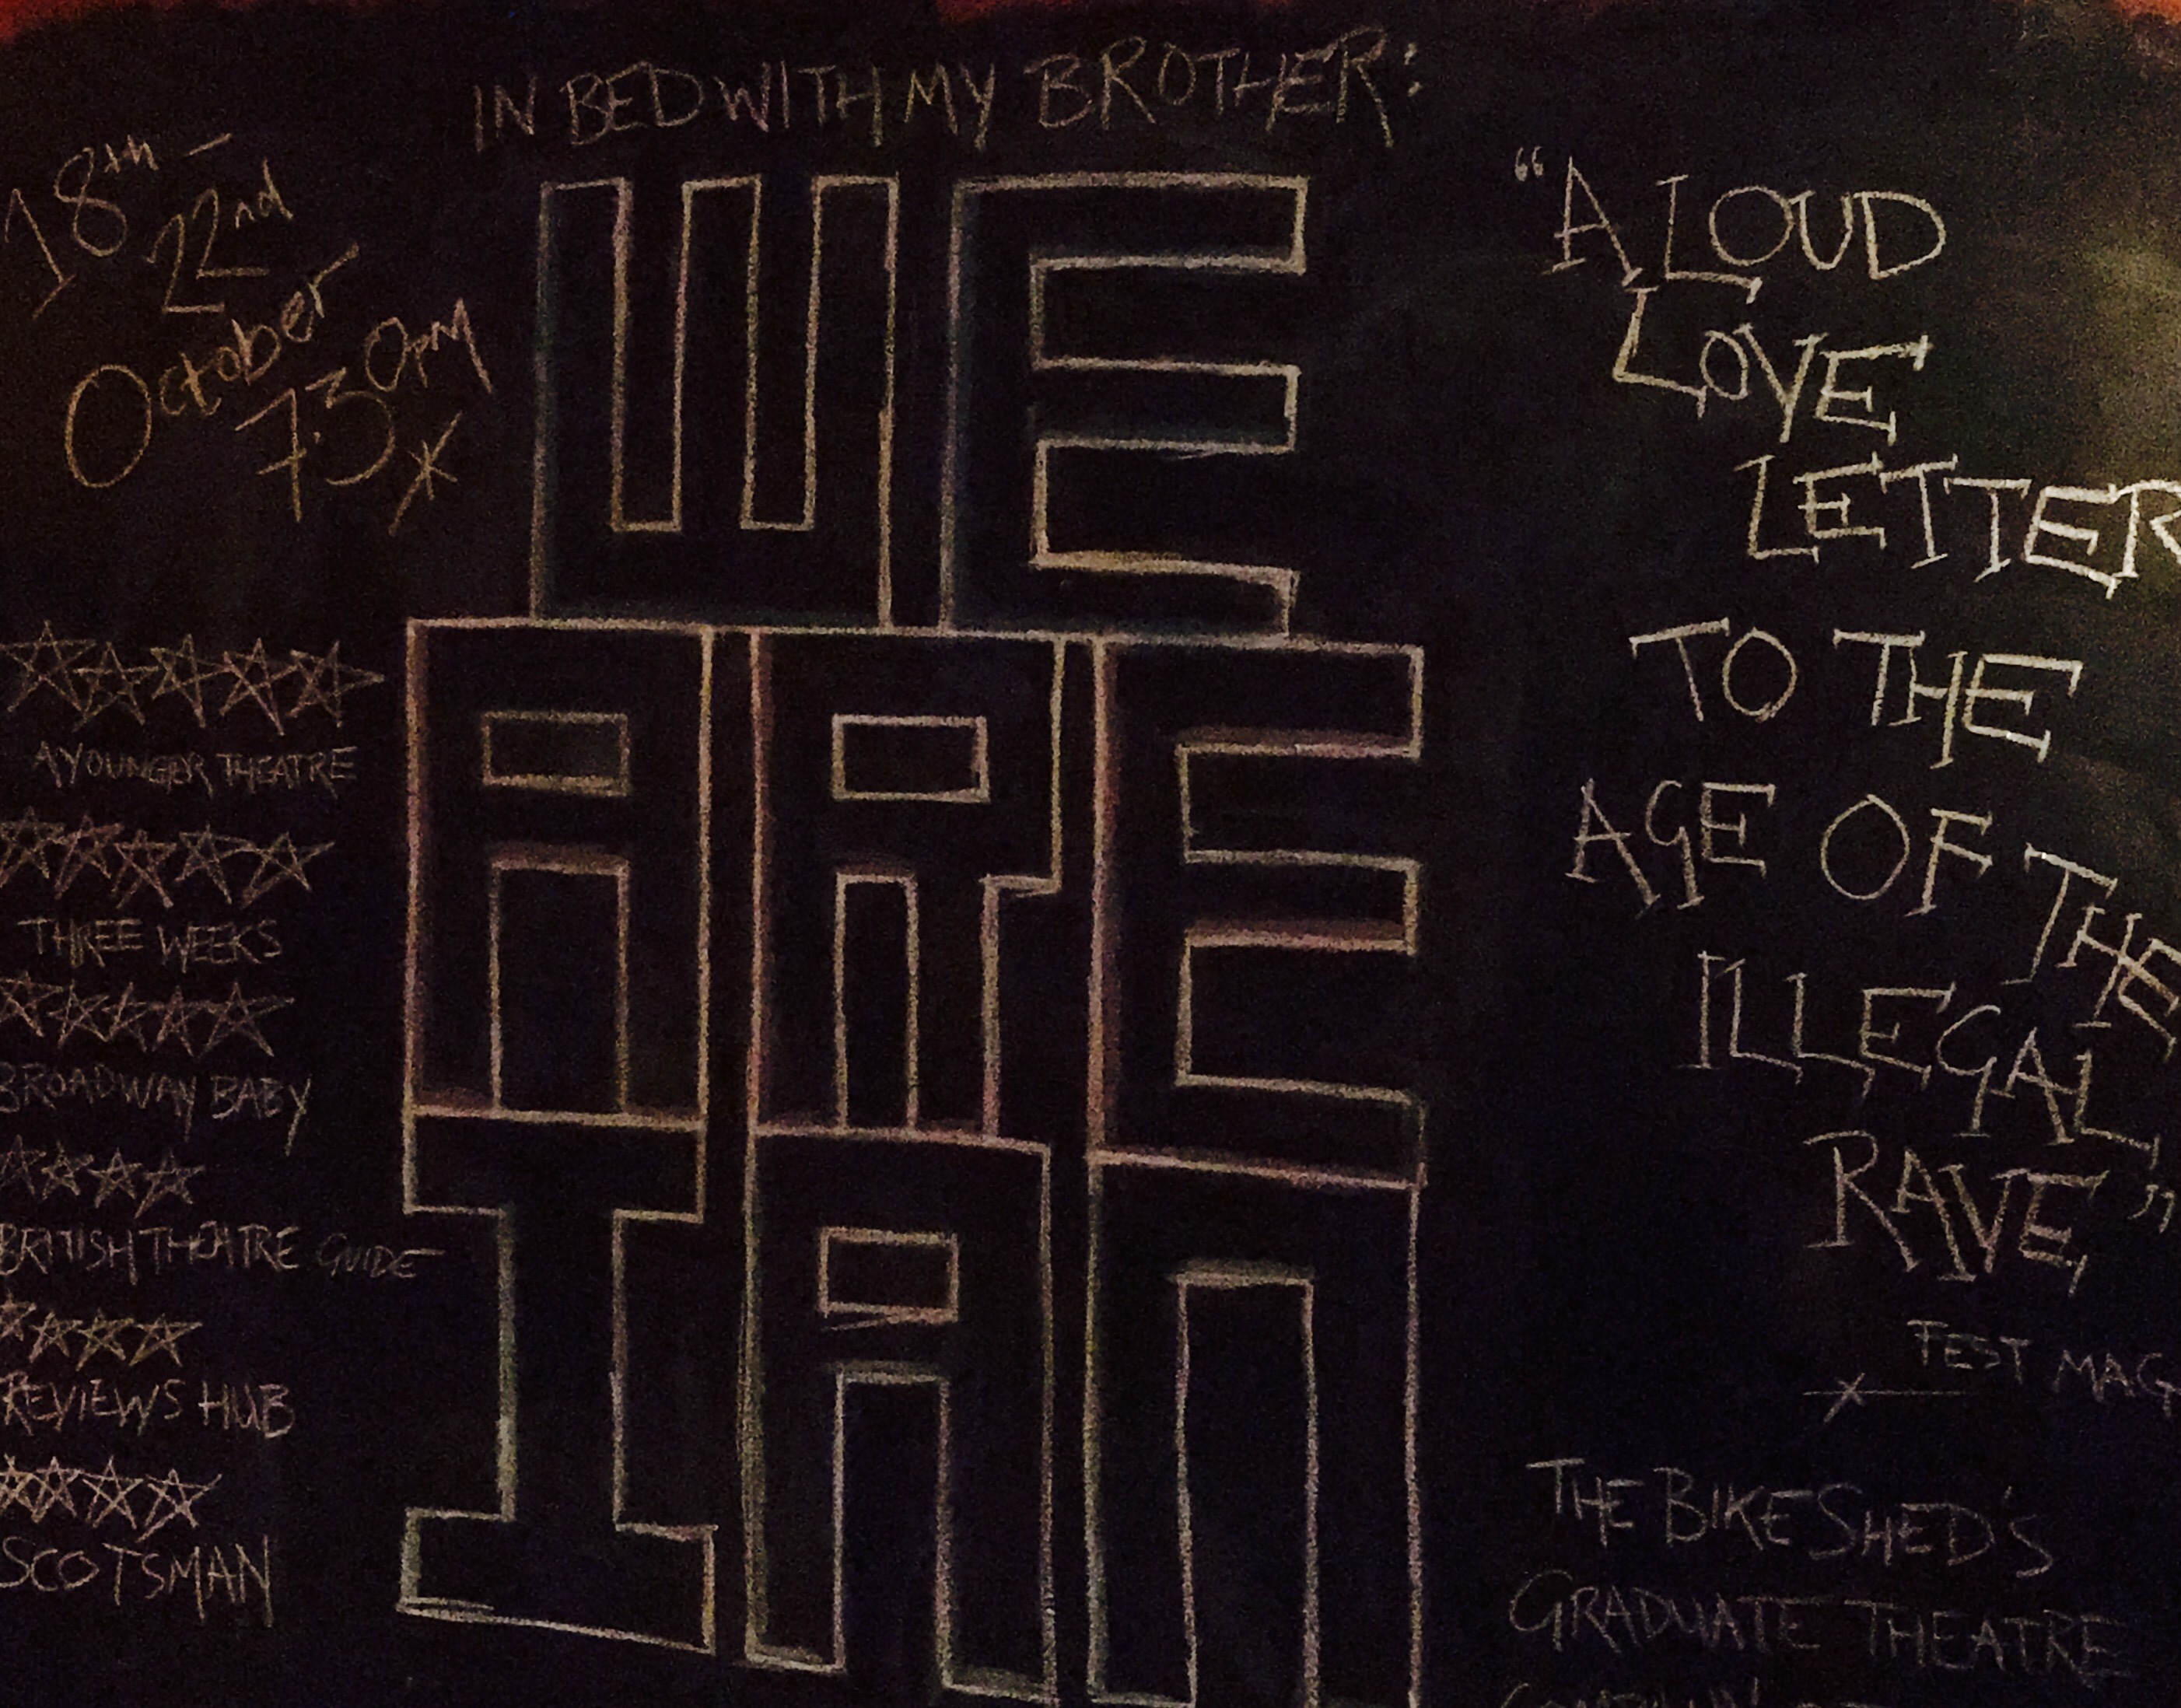 IN BED WITH MY BROTHER:
18th –
22nd
October
7.30pm
WE
ARE
IAN
☆☆☆☆☆
A YOUNGER THEATRE
☆☆☆☆☆
THREE WEEKS
☆☆☆☆☆
BROADWAY BABY
☆☆☆☆
BRITISH THEATRE GUIDE
☆☆☆☆
REVIEWS HUB
☆☆☆☆
SCOTSMAN
"A LOUD
LOVE
LETTER
TO THE
AGE OF THE
ILLEGAL
RAVE"
FEST MAG
THE BIKE SHED'S
GRADUATE THEATRE